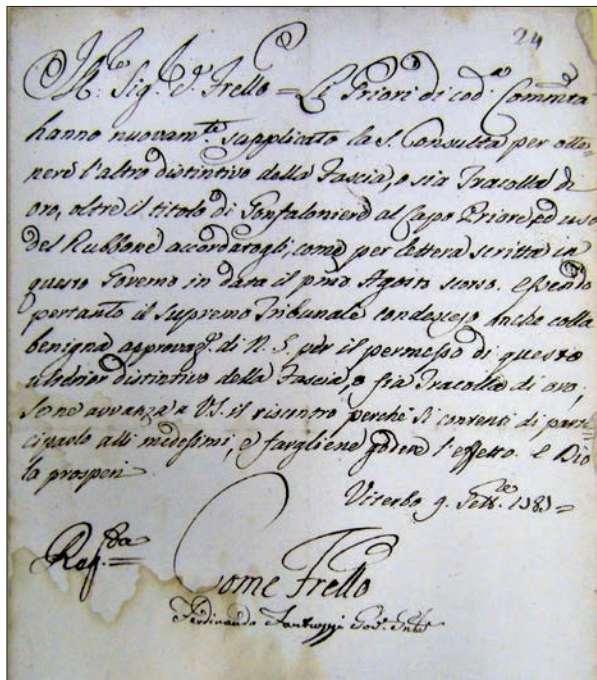 24
M.to Sig.r J.d. Frello = Li Priori di cod.a Comm.tà
hanno nuovam.te supplicato la S. Consulta per otte=
nere l'altro distintivo della Fascia, o sia Tracolla di
oro, oltre il titolo di Gonfaloniere al Capo Priore, ed uso
del Rubbone accordatogli, come per lettera scritta in
questo Governo in data il pmo Agosto scorso. Essendo
pertanto il Supremo Tribunale condesceso anche colla
benigna approvaz.e di N. S. per il permesso di questo
ulterior distintivo della Fascia, o sia Tracolla di oro,
se ne avvanza a V.S. il riscontro perchè si contenti di parte=
ciparlo alli medesimi, e fargliene godere l'effetto. e Dio
la prosperi
Viterbo 9. Sett.re 1783 =
Come Frello
Ferdinando Fantuzzi Gov.